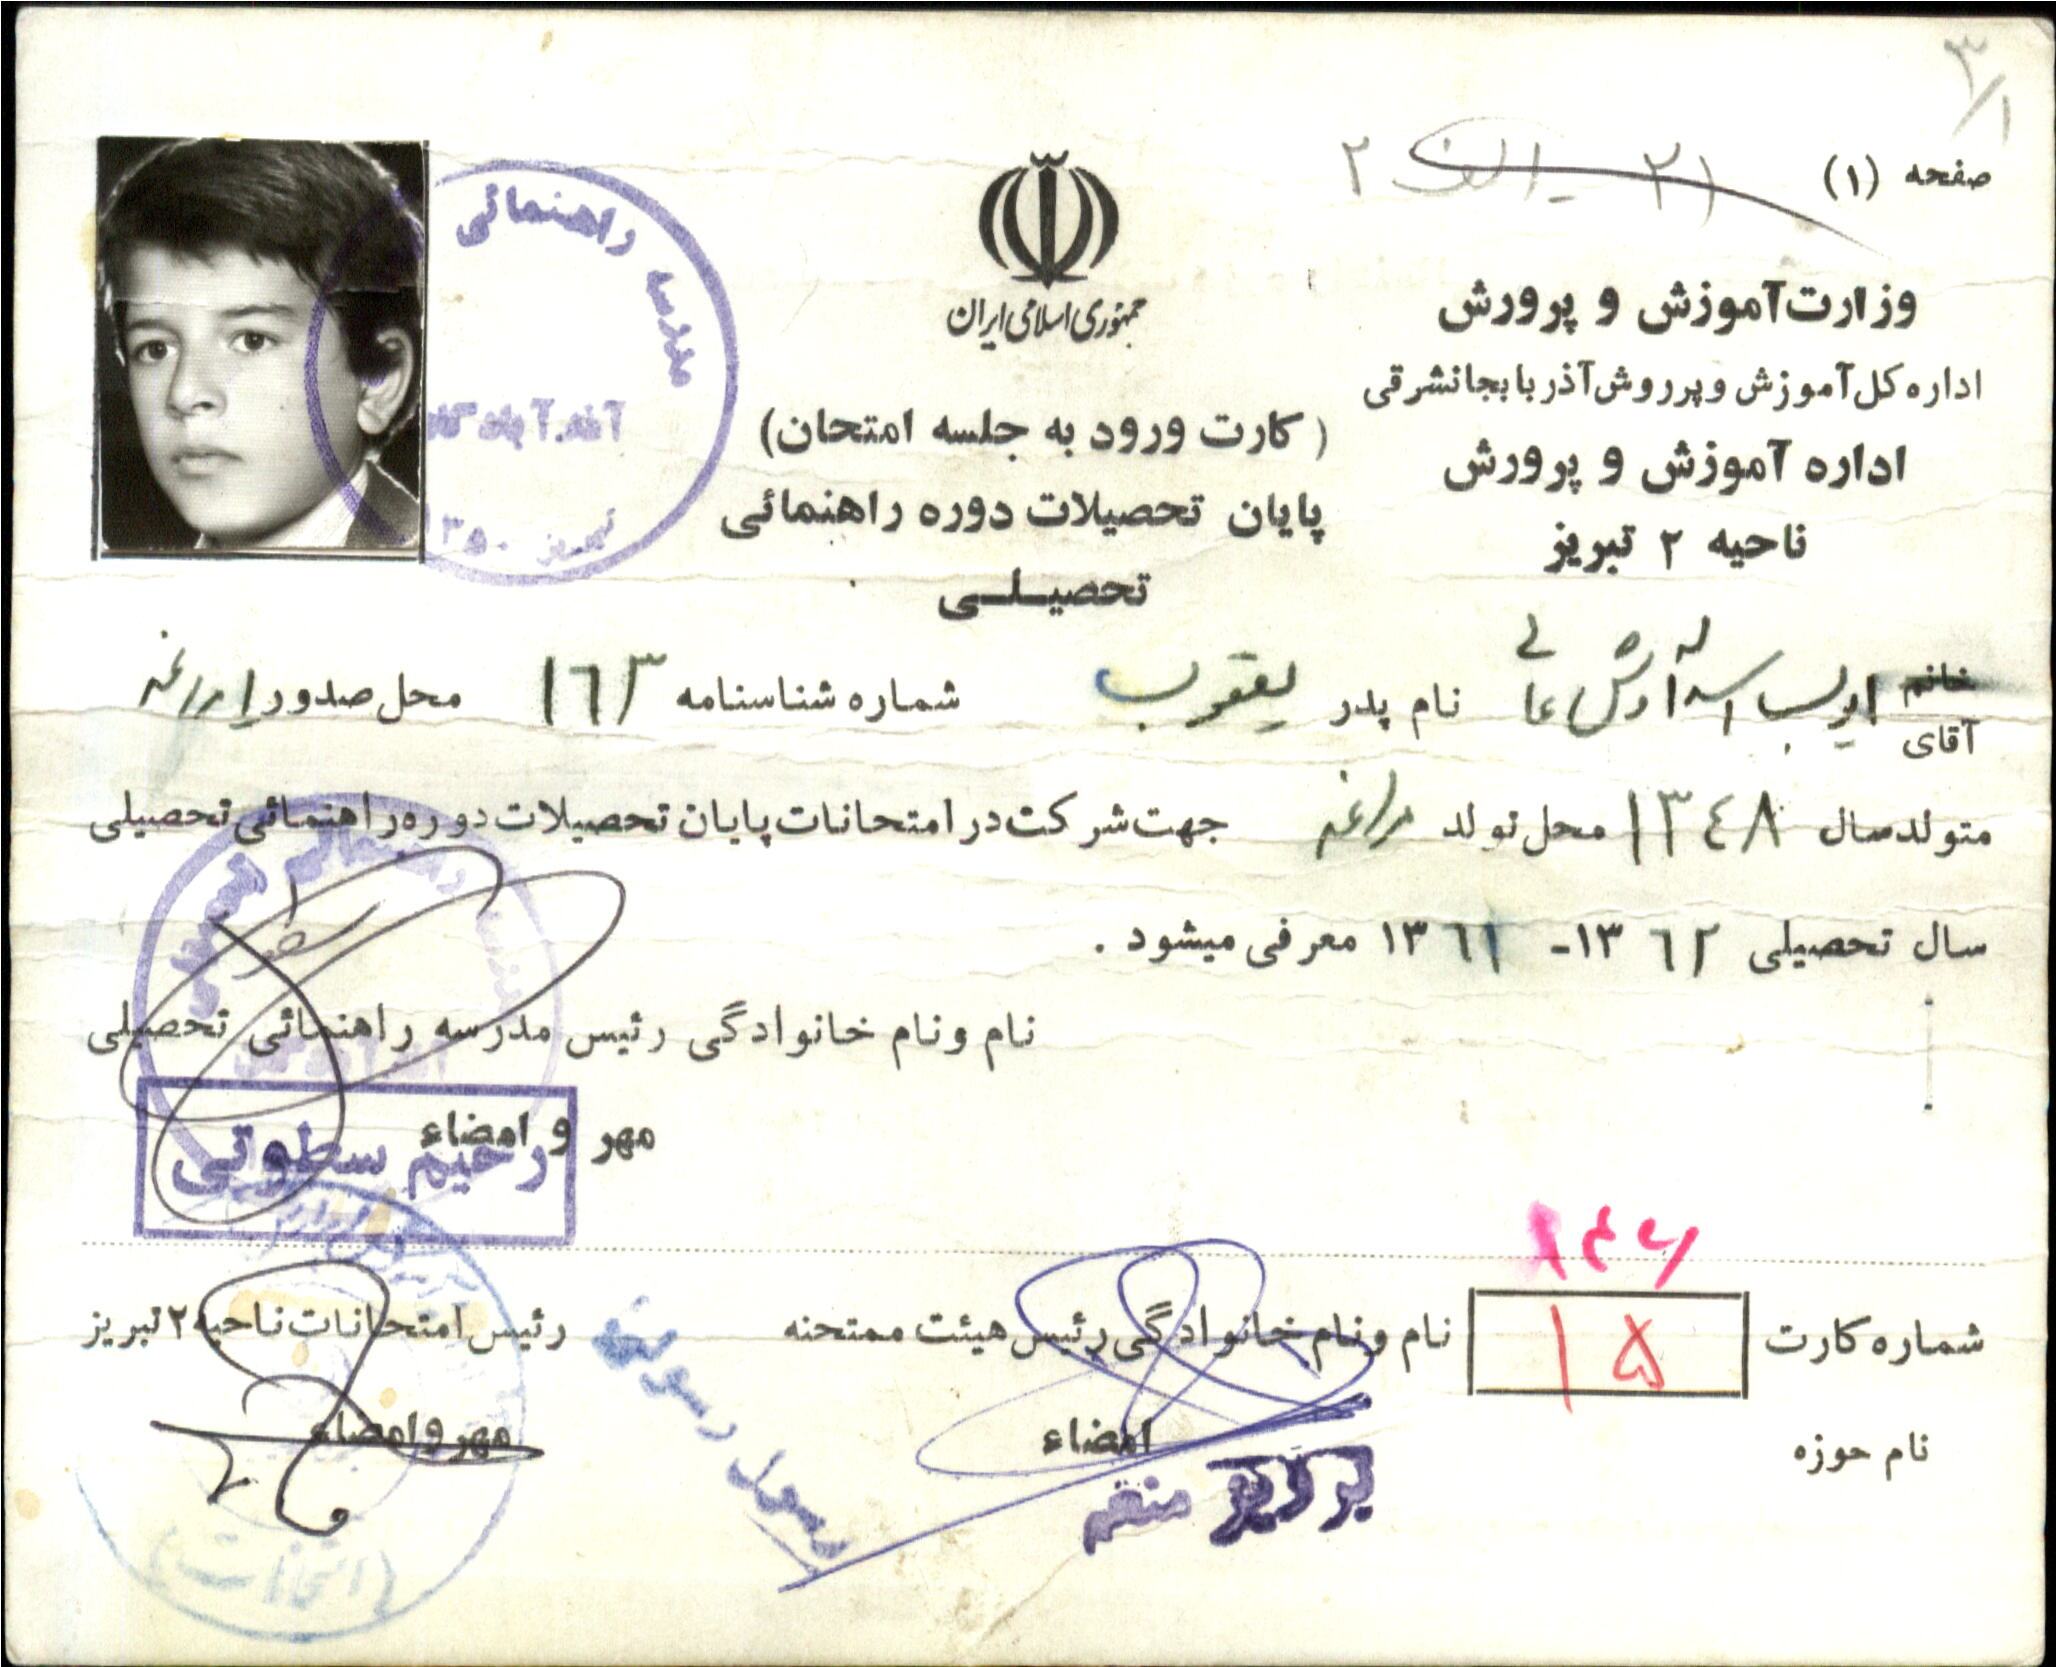 ۳/۱
صفحه (۱)
۲۱ - الف ۲
جمهوری اسلامی ایران
وزارت آموزش و پرورش
اداره کل آموزش و پرورش آذربایجانشرقی
اداره آموزش و پرورش
ناحیه ۲ تبریز
(کارت ورود به جلسه امتحان)
پایان تحصیلات دوره راهنمائی
تحصیلی
مدرسه راهنمائی
تبریز ۱۳۵۰
خانم
آقای ایوب نام پدر یعقوب شماره شناسنامه ۱۶۳ محل صدور مراغه
متولد سال ۱۳۴۸ محل تولد مراغه جهت شرکت در امتحانات پایان تحصیلات دوره راهنمائی تحصیلی
سال تحصیلی ۱۳۶۲ - ۱۳۶۱ معرفی میشود .
نام و نام خانوادگی رئیس مدرسه راهنمائی تحصیلی
مهر و امضاء
رحیم سطوتی
۱۴۶
شماره کارت ۱۵ نام و نام خانوادگی رئیس هیئت ممتحنه رئیس امتحانات ناحیه ۲ تبریز
نام حوزه امضاء مهر و امضاء
رسول
امتحانات